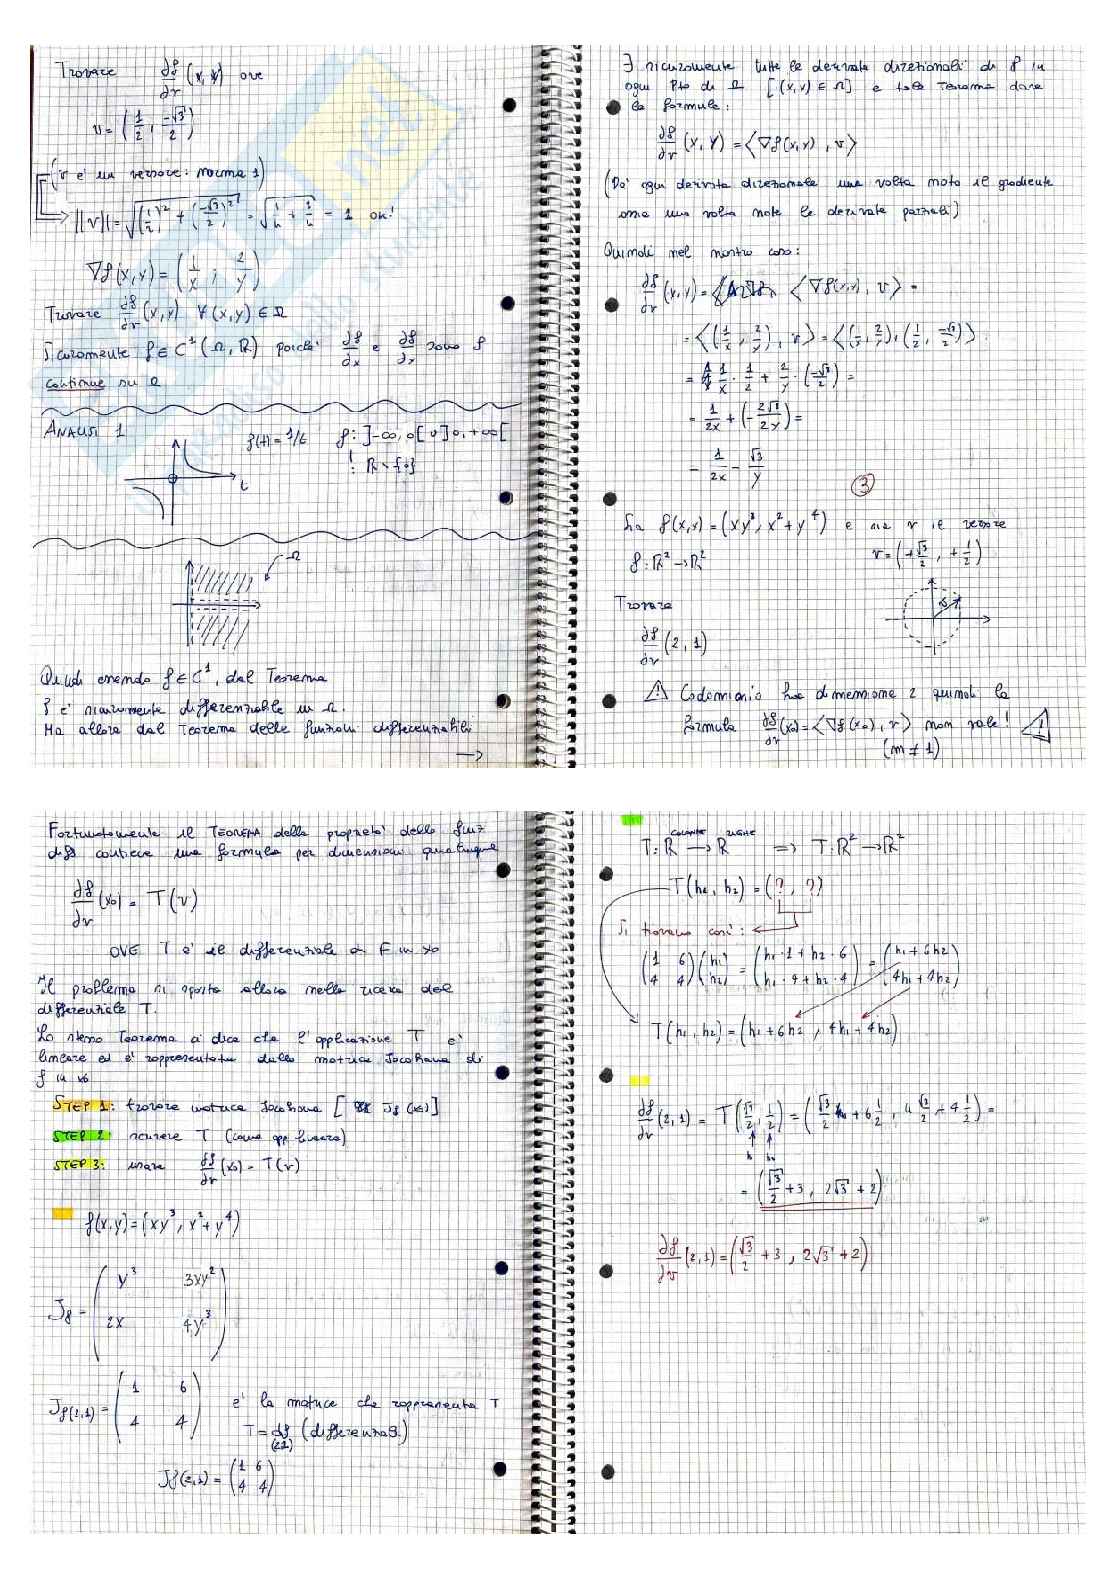 Trovare ∂f/∂v (x, y) ove
v = (1/2, -√3/2)
(v è un versore: norma 1)
||v|| = √((1/2)² + (-√3/2)²) = √(1/4 + 3/4) = 1 ok!
∇f(x,y) = (1/x ; 2/y)
Trovare ∂f/∂v (x,y) ∀(x,y) ∈ Ω
Sicuramente f ∈ C¹(Ω, R) poiché ∂f/∂x e ∂f/∂x sono f
continue su Ω
ANALISI 1
f(t) = 1/t f: ]-∞, 0[ U ]0, +∞[
t
: R \ {0}
Ω
Quindi essendo f ∈ C¹, dal Teorema
f è sicuramente differenziabile in Ω.
Ma allora dal Teorema delle funzioni differenziabili
→
∃ sicuramente tutte le derivate direzionali di f in
ogni pto di Ω [(x,y) ∈ Ω] e tale Teorema dava
la formula:
∂f/∂v (x, y) = ⟨∇f(x,y), v⟩
(Dà ogni derivata direzionale una volta noto il gradiente
ossia una volta note le derivate parziali)
Quindi nel nostro caso:
∂f/∂v (x,y) = ⟨∇f(x,y), v⟩ =
= ⟨(1/x, 2/y), v⟩ = ⟨(1/x, 2/y), (1/2, -√3/2)⟩
= 1/x · 1/2 + 2/y · (-√3/2) =
= 1/2x + (-2√3/2x) =
= 1/2x - √3/y
3
Sia f(x,y) = (xy³, x² + y⁴) e sia v il versore
f: R² → R² v = (+√3/2, +1/2)
Trovare
∂f/∂v (2, 1)
⚠ Codominio ha dimensione 2 quindi la
formula ∂f/∂v (x₀) = ⟨∇f(x₀), v⟩ non vale! ⚠
(m ≠ 1)
Fortunatamente il TEOREMA della proprietà delle funz
diff contiene una formula per dimensioni qualunque
∂f/∂v (x₀) = T(v)
OVE T è il differenziale di F in x₀
Il problema si sposta allora nella ricerca del
differenziale T.
Lo stesso Teorema ci dice che l'applicazione T è
lineare ed è rappresentata dalla matrice Jacobiana di
f in x₀
STEP 1: trovare matrice Jacobiana [ Jf (x₀)]
STEP 2: scrivere T (come app lineare)
STEP 3: usare ∂f/∂v (x₀) = T(v)
f(x,y) = (xy³, x² + y⁴)
Jf = (y³ 3xy²
2x 4y³)
Jf(2,1) = (1 6
4 4) è la matrice che rappresenta T
T = df (2,1) (differenzial.)
Jf(2,1) = (1 6
4 4)
COLONNE RIGHE
T: R → R ⇒ T: R² → R²
T(h₁, h₂) = (?, ?)
Si trovano così:
(1 6
4 4) (h₁
h₂) = (h₁·1 + h₂·6
h₁·4 + h₂·4) = (h₁ + 6h₂
4h₁ + 4h₂)
T(h₁, h₂) = (h₁ + 6h₂, 4h₁ + 4h₂)
∂f/∂v (2,1) = T(√3/2, 1/2) = (√3/2 + 6 1/2, 4 √3/2 + 4 1/2) =
h₁ h₂
= (√3/2 + 3, 2√3 + 2)
∂f/∂v (2,1) = (√3/2 + 3, 2√3 + 2)